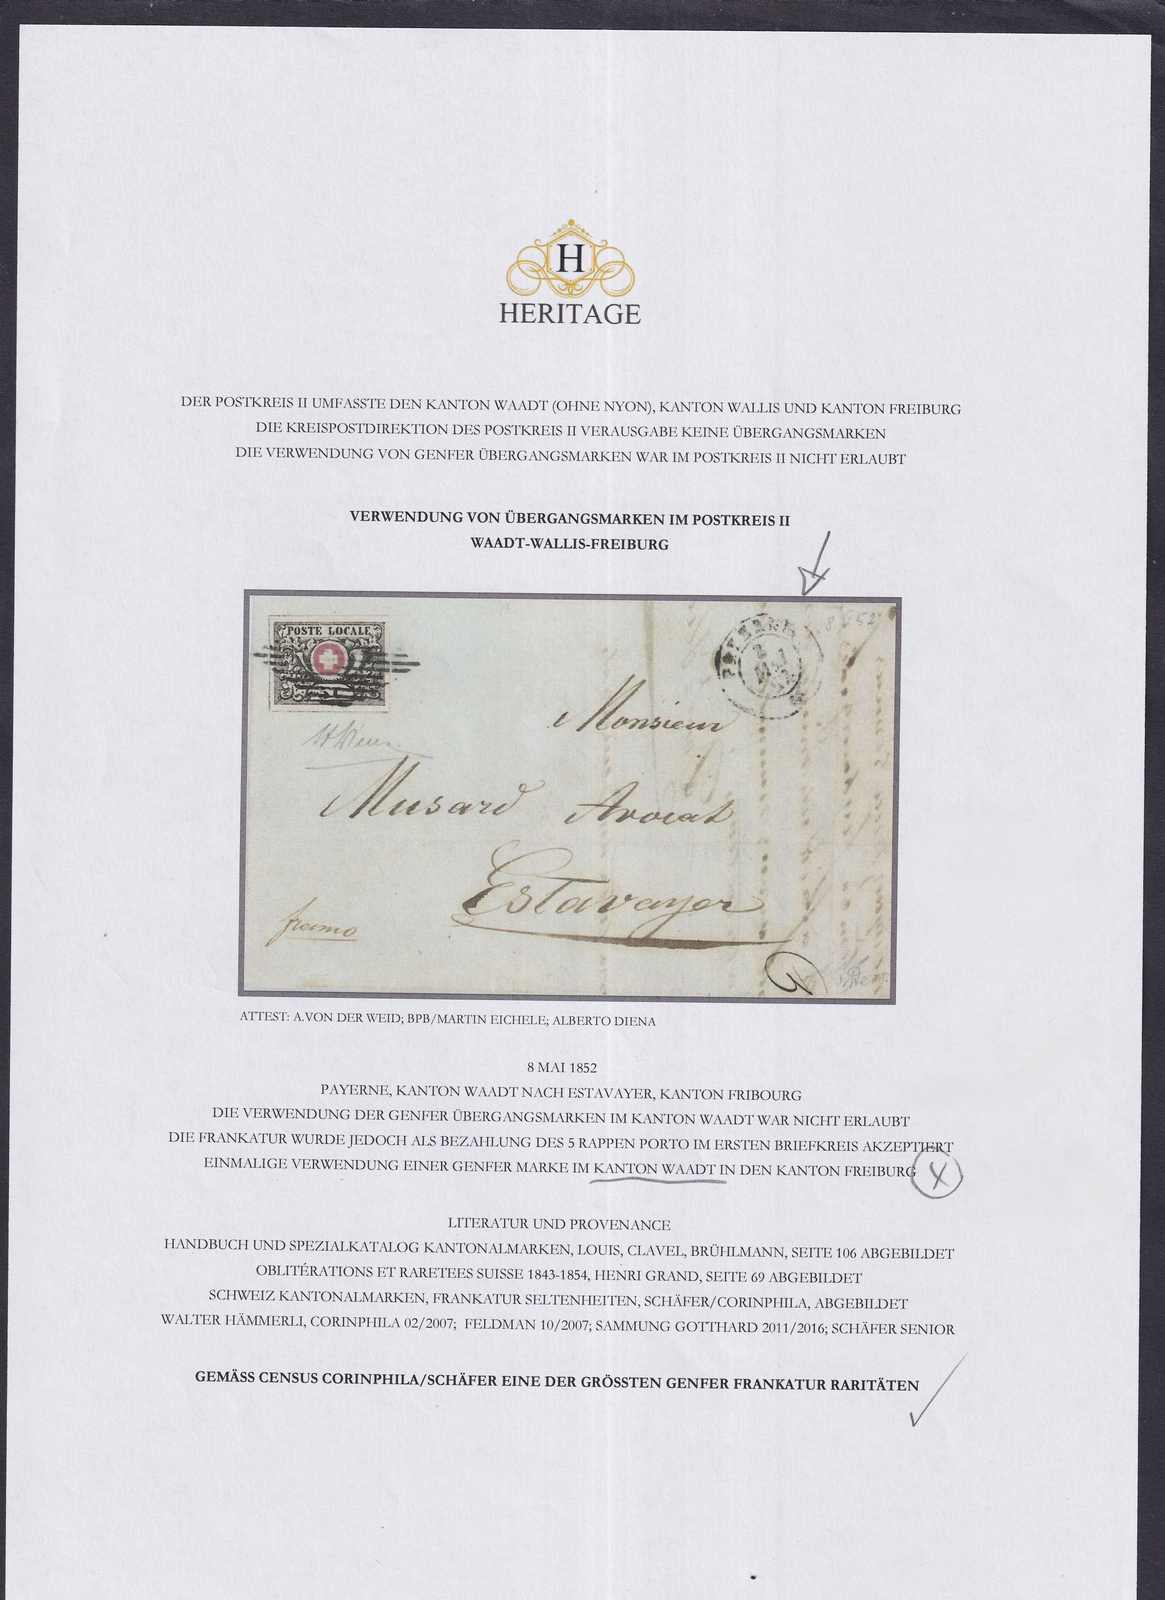 H
HERITAGE
DER POSTKREIS II UMFASSTE DEN KANTON WAADT (OHNE NYON), KANTON WALLIS UND KANTON FREIBURG
DIE KREISPOSTDIREKTION DES POSTKREIS II VERAUSGABE KEINE ÜBERGANGSMARKEN
DIE VERWENDUNG VON GENFER ÜBERGANGSMARKEN WAR IM POSTKREIS II NICHT ERLAUBT
VERWENDUNG VON ÜBERGANGSMARKEN IM POSTKREIS II
WAADT-WALLIS-FREIBURG
POSTE LOCALE
PAYERNE
8 MAI 52
Monsieur
Musard Avocat
Estavayer
franco
ATTEST: A.VON DER WEID; BPB/MARTIN EICHELE; ALBERTO DIENA
8 MAI 1852
PAYERNE, KANTON WAADT NACH ESTAVAYER, KANTON FRIBOURG
DIE VERWENDUNG DER GENFER ÜBERGANGSMARKEN IM KANTON WAADT WAR NICHT ERLAUBT
DIE FRANKATUR WURDE JEDOCH ALS BEZAHLUNG DES 5 RAPPEN PORTO IM ERSTEN BRIEFKREIS AKZEPTIERT
EINMALIGE VERWENDUNG EINER GENFER MARKE IM KANTON WAADT IN DEN KANTON FREIBURG
LITERATUR UND PROVENANCE
HANDBUCH UND SPEZIALKATALOG KANTONALMARKEN, LOUIS, CLAVEL, BRÜHLMANN, SEITE 106 ABGEBILDET
OBLITÉRATIONS ET RARETEES SUISSE 1843-1854, HENRI GRAND, SEITE 69 ABGEBILDET
SCHWEIZ KANTONALMARKEN, FRANKATUR SELTENHEITEN, SCHÄFER/CORINPHILA, ABGEBILDET
WALTER HÄMMERLI, CORINPHILA 02/2007; FELDMAN 10/2007; SAMMUNG GOTTHARD 2011/2016; SCHÄFER SENIOR
GEMÄSS CENSUS CORINPHILA/SCHÄFER EINE DER GRÖSSTEN GENFER FRANKATUR RARITÄTEN